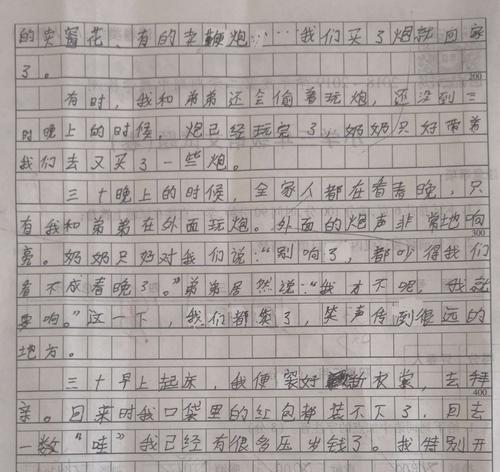 的卖窗花、有的卖鞭炮……我们买了炮就回家
了。
200
有时，我和弟弟还会偷着玩炮，还没到三
时晚上的时候，炮已经玩完了，奶奶只好带弟
我们去又买了一些炮。
三十晚上的时候，全家人都在看春晚，只
有我和弟弟在外面玩炮。外面的炮声非常地响
300
亮。奶奶只好对我们说：“别响了，都吵得我们
看不成春晚了。”弟弟居然说：“我才不呢，我就
要响。”这一下，我们都笑了，笑声传到很远的
地方。
三十早上起床，我便穿好新衣裳，去拜
400
亲。回来时我口袋里的红包都装不下了，回去
一数“哇”我已经有很多压岁钱了。我特别开